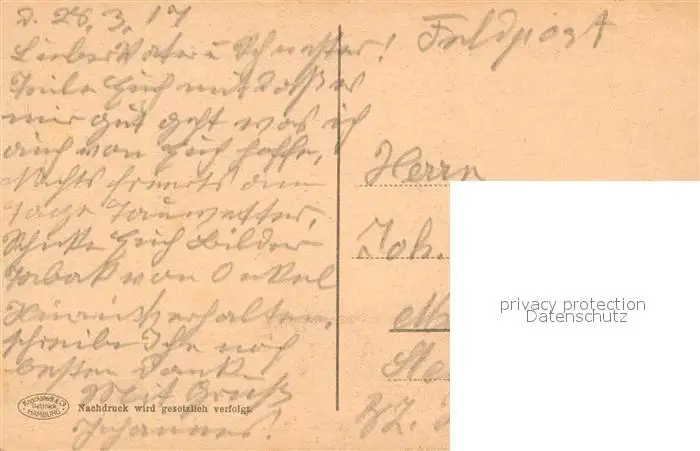 d. 28.3.17
Lieber Vater u Schwester!
Teile Euch mit dass es
mir gut geht was ich
auch von Euch hoffe,
Nachts friert's am
tage Tauwetter,
Schicke Euch Bilder
Tabak von Onkel
erhalten,
schreibe Ihm noch
besten Dank
Mit Gruß
Johannes!
Feldpost
Herrn
Joh.
Knackstedt & Co
HAMBURG
Nachdruck wird gesetzlich verfolgt.
privacy protection
Datenschutz